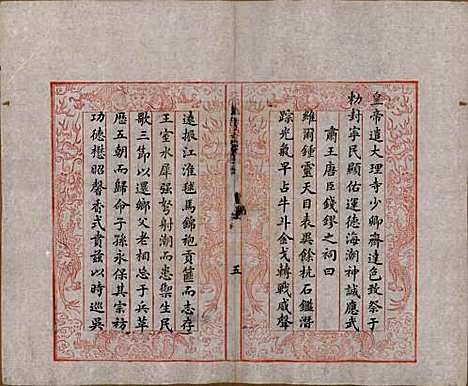 皇帝遣大理寺少卿齊達色致祭于
勅封寧民顯佑運德海潮神誠應武
肅王唐臣錢鏐之祠曰
維爾鍾靈天目表異餘杭石鑑潛
踪光氣早占牛斗金戈轉戰威聲
五
遠振江淮毬馬錦袍貢篚而志存
王室水犀强弩射潮而患禦生民
歌三節以還鄉父老相忘于兵革
歷五朝而歸命子孫永保其宗祊
功德懋昭馨香式貴茲以時巡吳